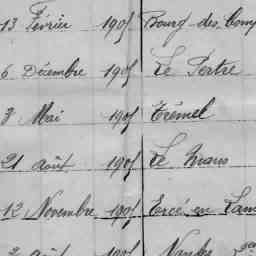 13 Février 1905 Bourg-des-Comp
6 Décembre 1905 Le Pertre
8 Mai 1905 Trémel
21 août 1905 Le Mans
12 Novembre 1905 Ercé en Lam
2 août 1905 Nantes